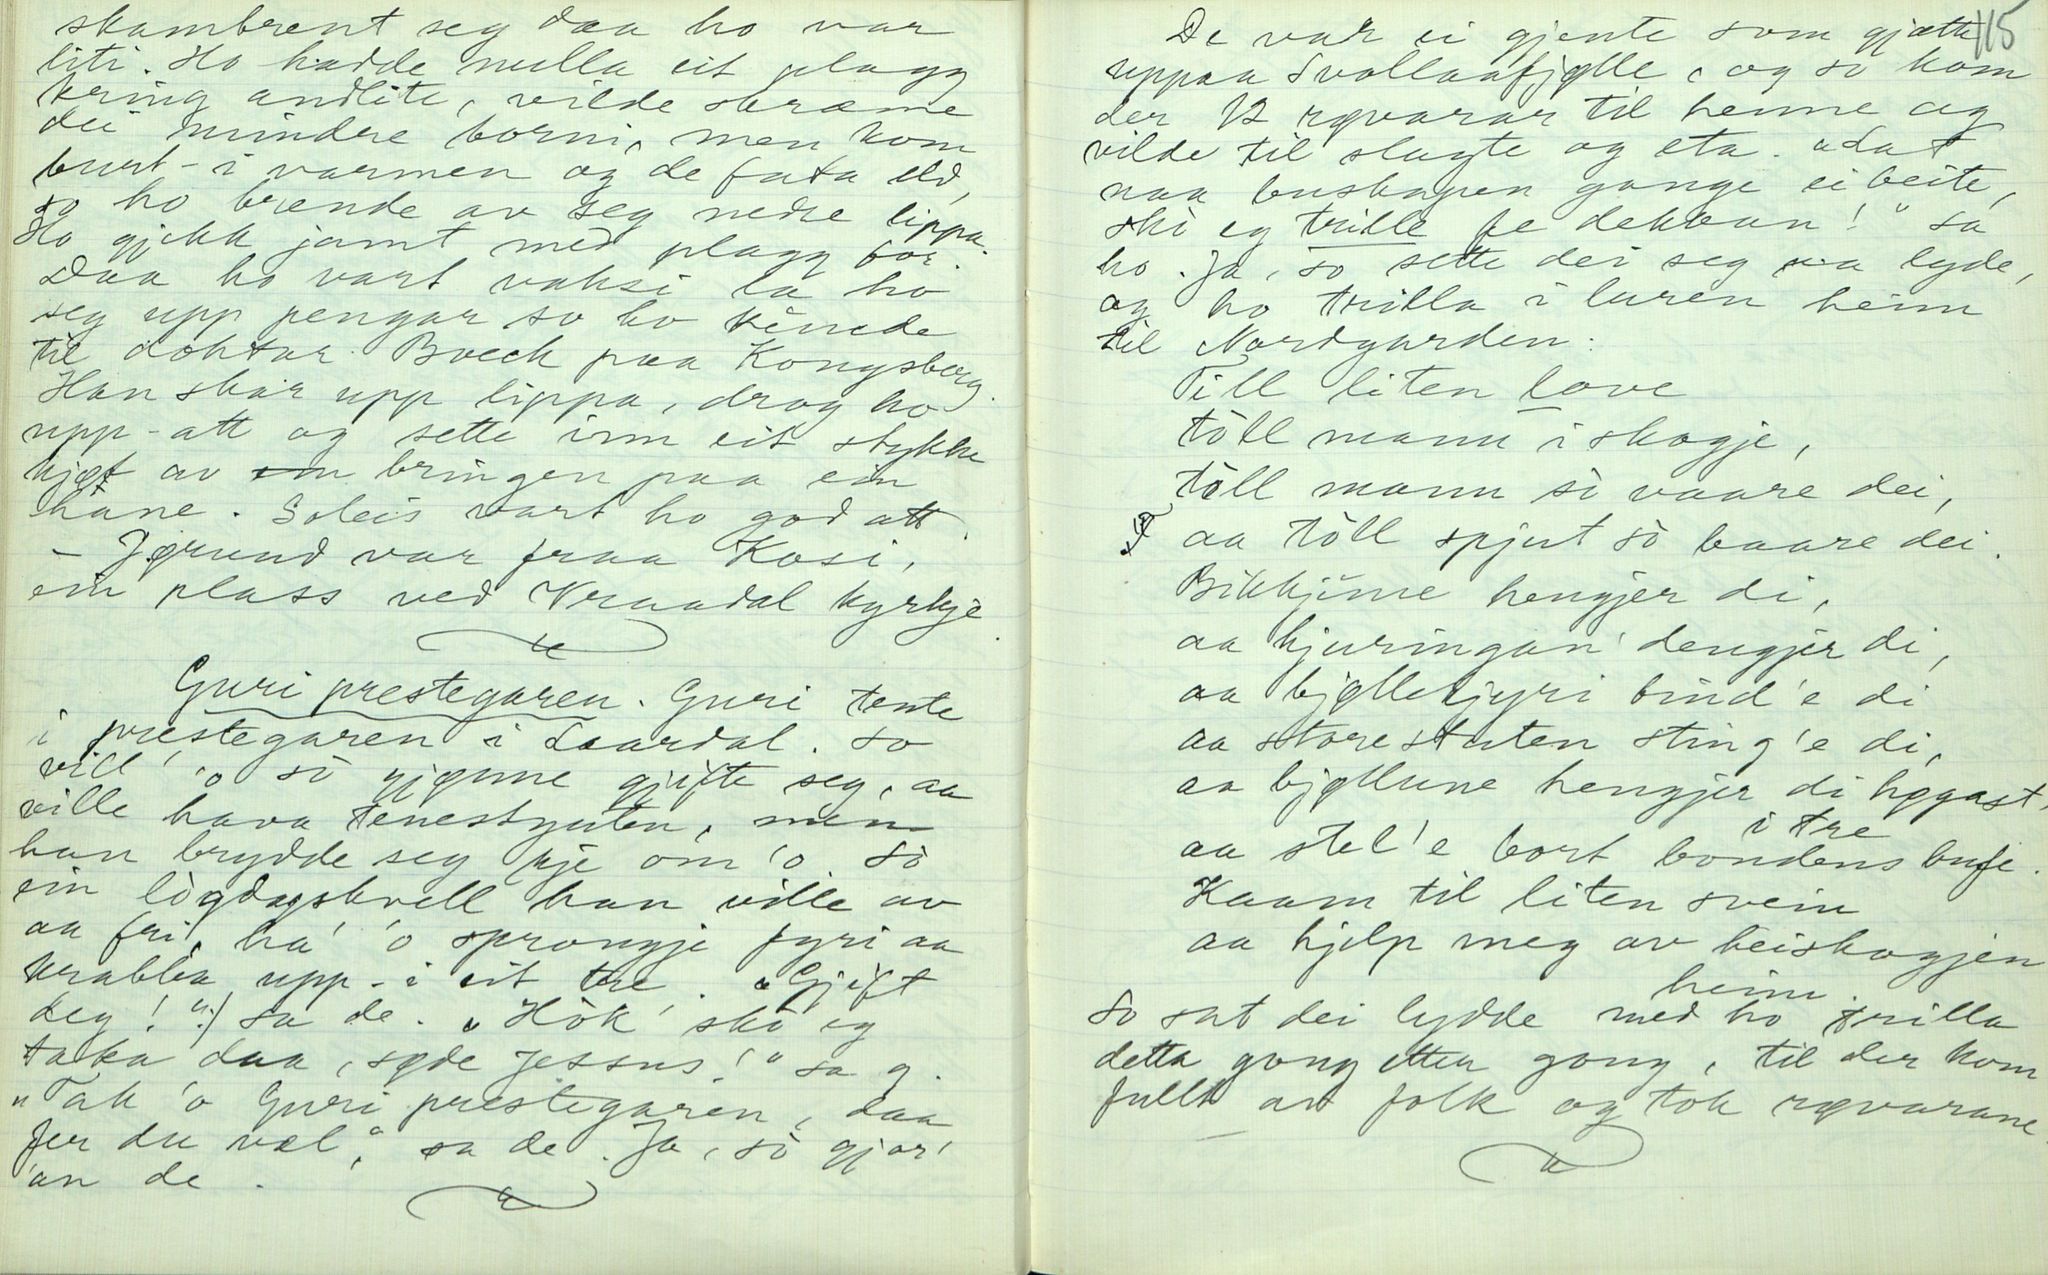 skambrent seg daa ho var
liti. Ho hadde nulla eit plagg
kring andlite, vilde skræme
dei mindre borni, men kom
burt-i varmen og de fata eld,
so ho brende av seg nedre lippa.
Ho gjekk jamt med plagg for.
Daa ho vart vaksi la ho
seg upp pengar so ho kunde
til doktar Boeck paa Kongsberg.
Han skar upp lippa, drog ho
upp-att og sette inn eit stykke
kjøt av bringen paa ein
hane. Soleis vart ho god att
- Jørund var fraa Kosi,
ein plass ved Kraadal kyrkje.
Guri prestegaren. Guri tente
i prestegaren i Laardal. So
vill' 'o so gjønne gjifte seg, aa
ville hava tenestguten, men
han brydde seg kje om 'o. So
ein lògdagskvell han ville av
aa fri, ha' 'o sprongje fyri aa
krabba upp-i eit tre. "Gjift
deg!" :/ sa de. "Hòk' ska eg
taka daa, søde Jessus!" sa g.
"Tak 'o Guri prestegaren, daa
fer du vel," sa de. Ja, so gjor'
'an de.
115
De var ei gjente som gjætte
uppaa Svollaafjølle, og so kom
der 12 røvarar til henne og
vilde til slagte og eta. "Lat
naa buskapen gange ei beite,
ski eg trille fe dekkan!" sa
ho. Ja, so sette dei seg aa lyde,
og ho trilla i luren heim
til Nordgarden:
Till liten love
tòll mann i skogje,
tòll mann sì vaare dei,
aa tòll spjut sò baare dei.
Bikkjune hengjer di,
aa hjuringan' dengjer di,
aa bjøllekjyri bind'e di
aa storestuten sting'e di,
aa bjøllune hengjer di høgast
i tre
aa stel'e bort bondens bufe.
Kaam til liten svein
aa hjelp meg av heiskogjen
heim.
So sat dei lydde med ho trilla
detta gong etter gong, til der kom
fullt av folk og tok røvarane.